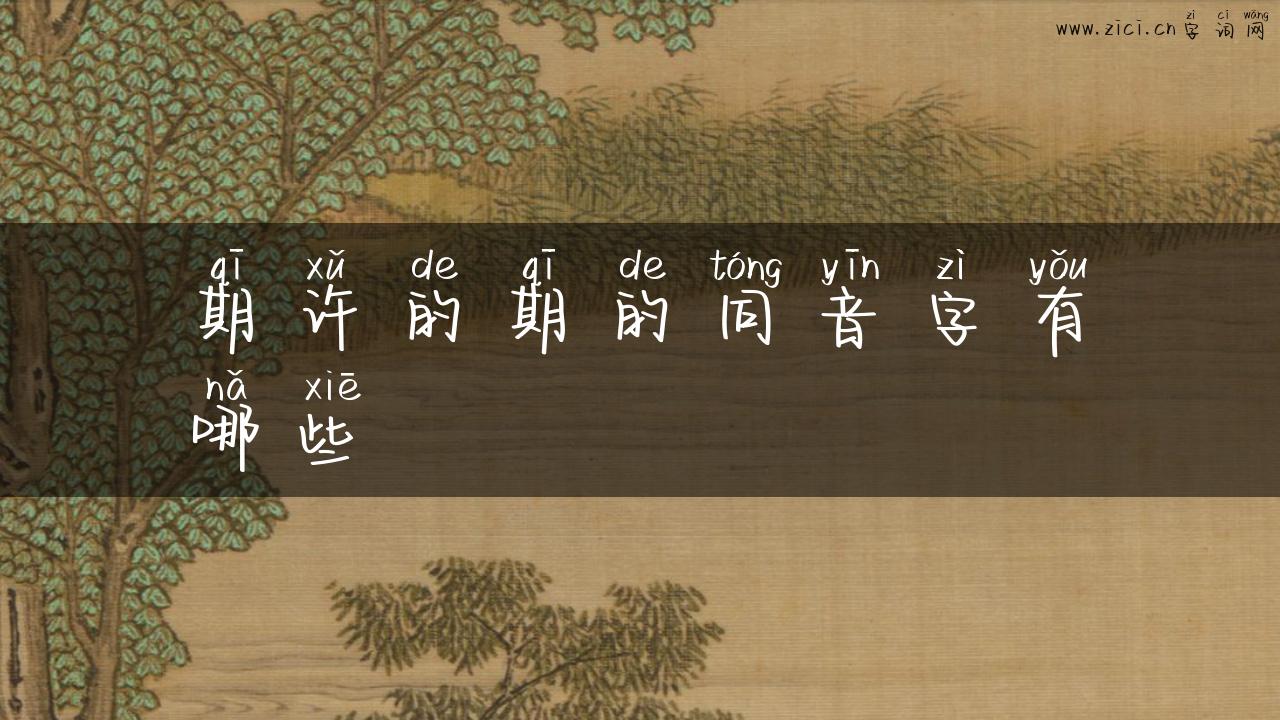 zì cí wǎng
www.zici.cn 字词网
qī xǔ de qī de tóng yīn zì yǒu
期许的期的同音字有
nǎ xiē
哪些